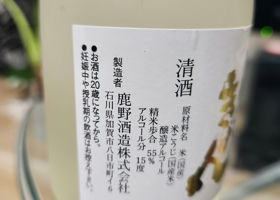 清酒
原材料名 米(国産)
米こうじ(国産米)
醸造アルコール
精米歩合 55%
アルコール分 15度
製造者
鹿野酒造株式会社
石川県加賀市八日市町イ6
●お酒は20歳になってから。
●妊娠中や授乳期の飲酒はお控え下さい。